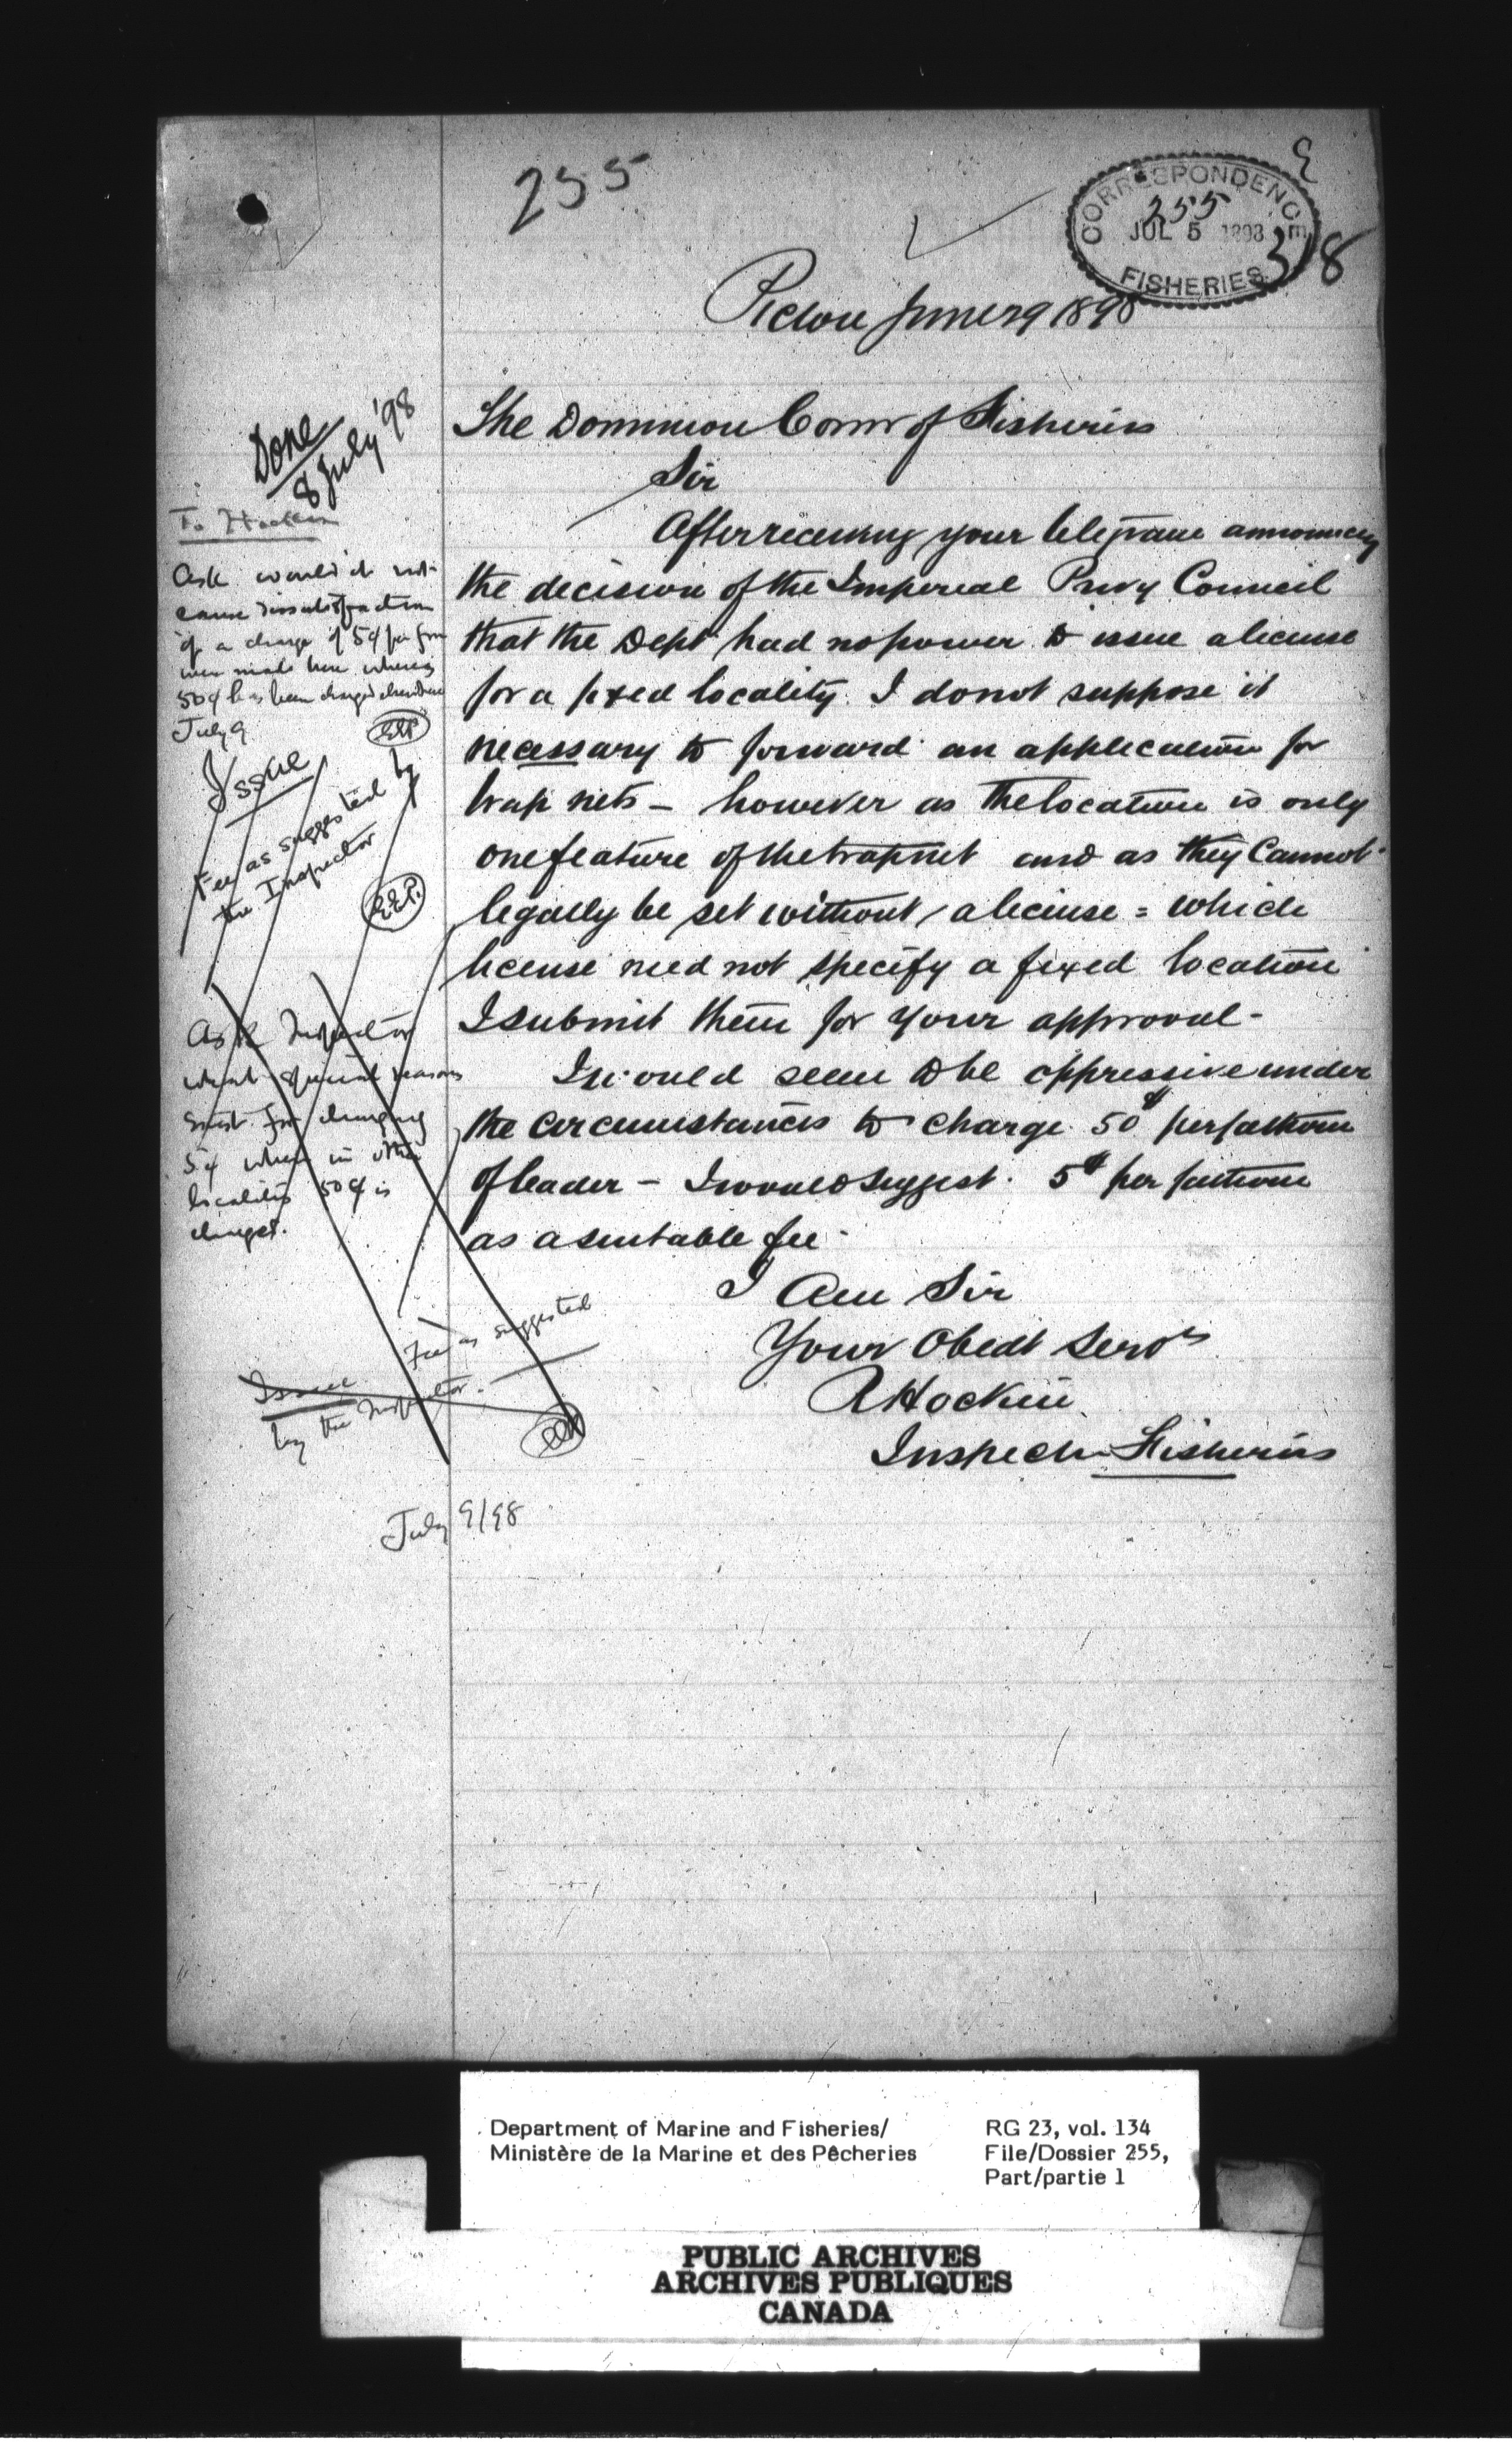 255
CORRESPONDENCE
255
JUL 5 1898
FISHERIES
318
Pictou June 29 1898
The Dominion Comr of Fisheries
Sir
After receiving your telegram announcing
the decision of the Imperial Privy Council
that the Dept had no power to issue a license
for a fixed locality. I do not suppose it
necessary to forward an application for
trap nets - however as the location is only
one feature of the trapnet and as they Cannot
legally be set without a license = which
license need not specify a fixed location
I submit them for your approval -
I would seem to be oppressive under
the circumstances to charge 50¢ per fathom
of leader - I would suggest 5¢ per fathom
as a suitable fee -
I Am Sir
Your Obedt Servt
R Hockin
Inspector Fisheries
Done
8 July '98
To Hockin
Ask would it not
cause dissatisfaction
if a charge of 5¢ per fm
were made here whereas
50¢ has been charged elsewhere
July 9
EEP
Issue
Fee as suggested by
the Inspector
E.E.P.
Ask Inspector
what special reasons
exist for charging
5¢ when in other
localities 50¢ is
charged.
Issue Fee as suggested
by the Inspector.
July 9/98
Department of Marine and Fisheries/
Ministère de la Marine et des Pêcheries
RG 23, vol. 134
File/Dossier 255,
Part/partie 1
PUBLIC ARCHIVES
ARCHIVES PUBLIQUES
CANADA